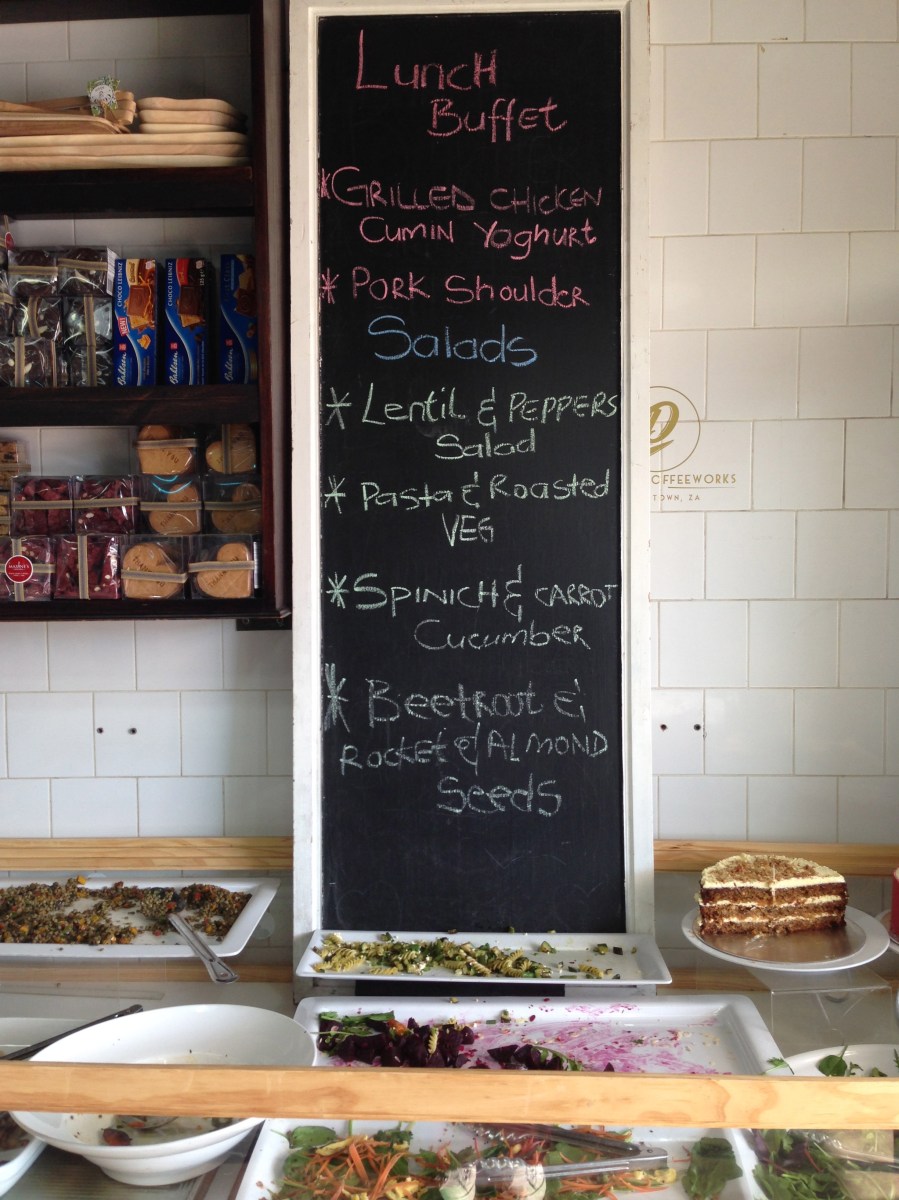 Lunch
Buffet
*GRILLED CHICKEN
Cumin Yoghurt
* PORK Shoulder
Salads
* Lentil & PEPPERS
Salad
* Pasta & Roasted
VEG
* SPINICH & CARROT
Cucumber
* Beetroot &
ROCKET & ALMOND
Seeds
CHOCO LEIBNIZ
Bahlsen
CHOCO LEIBNIZ
COFFEEWORKS
TOWN, ZA